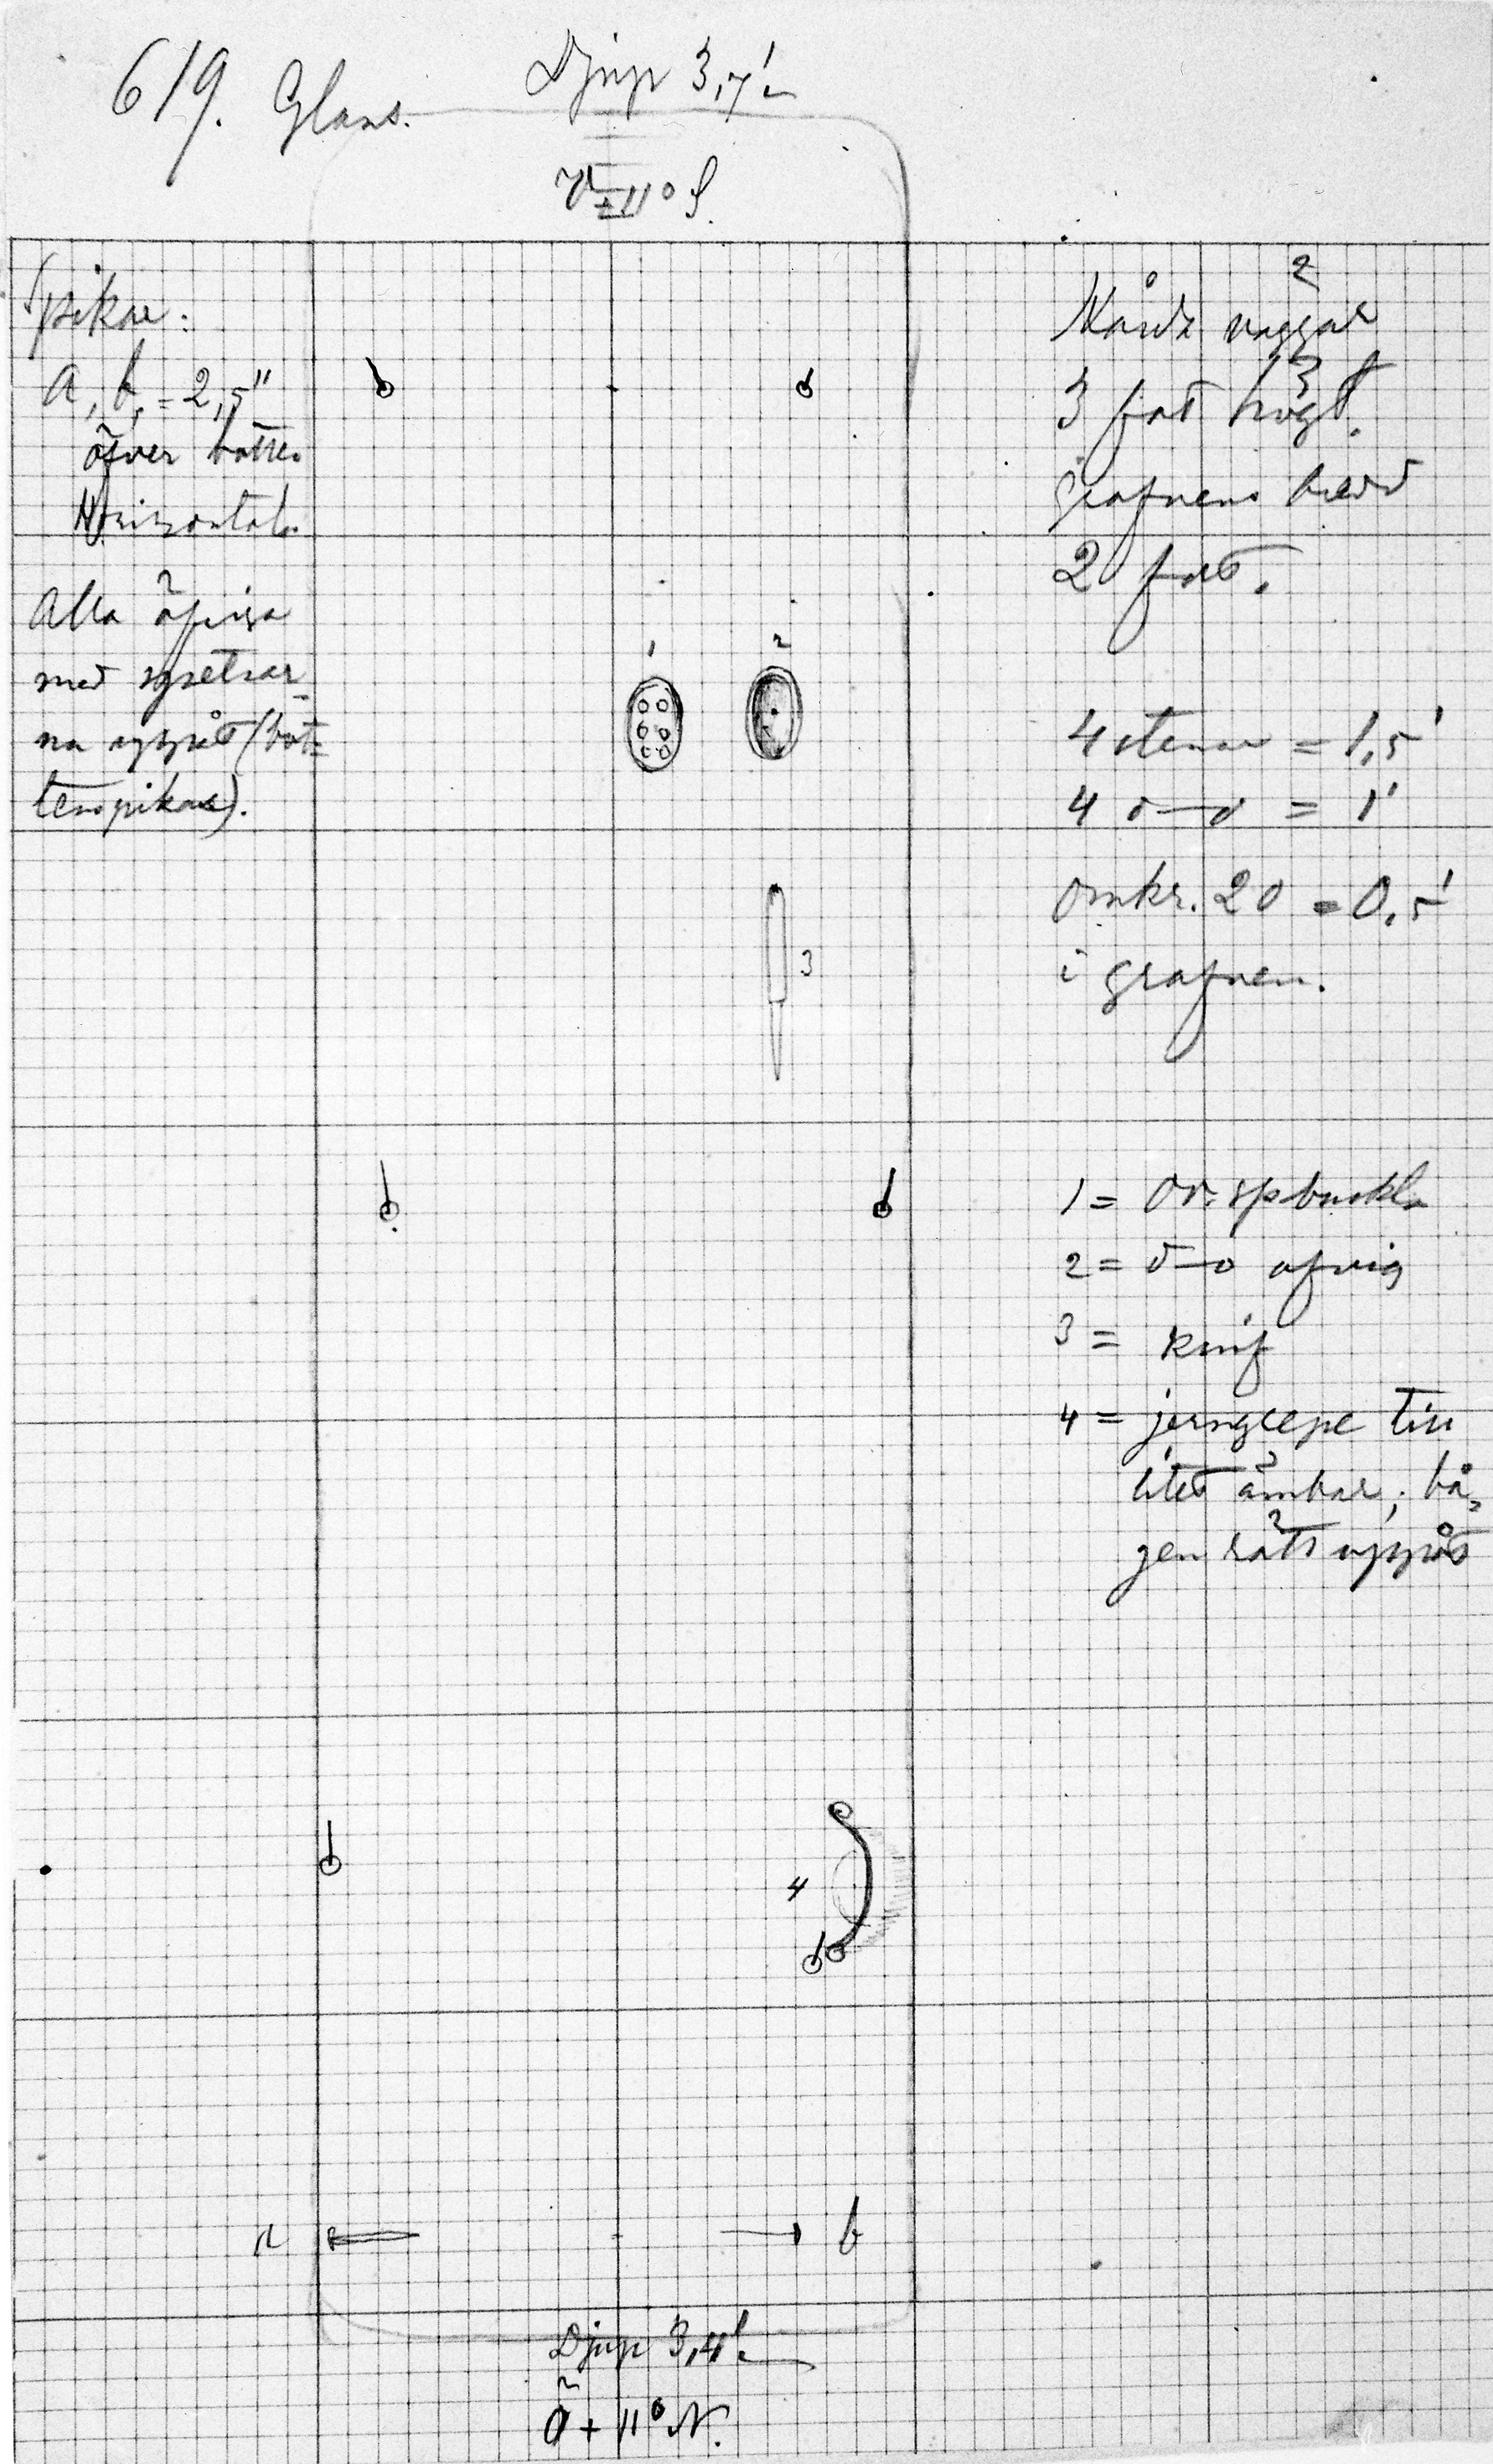 619. Glans.
Djup 3,7'
V ± 11° S.
Spikar:
a, b, = 2,5"
öfver botten
Horizontala
Alla öfriga
med spetsar-
na uppåt (bot-
tenspikar).
Hårda väggar
3 fot högt.
grafvens bredd
2 fot.
4 stenar = 1,5'
4 d—o = 1'
Omkr. 20 = 0,5'
i grafven.
1
2
3
1 = Or: spbuckla
2 = d—o afvig
3 = knif
4 = jerngrepe till
litet ämbar, bå-
gen rätt uppåt
4
a
b
Djup 3,4'
Ö + 11° N.